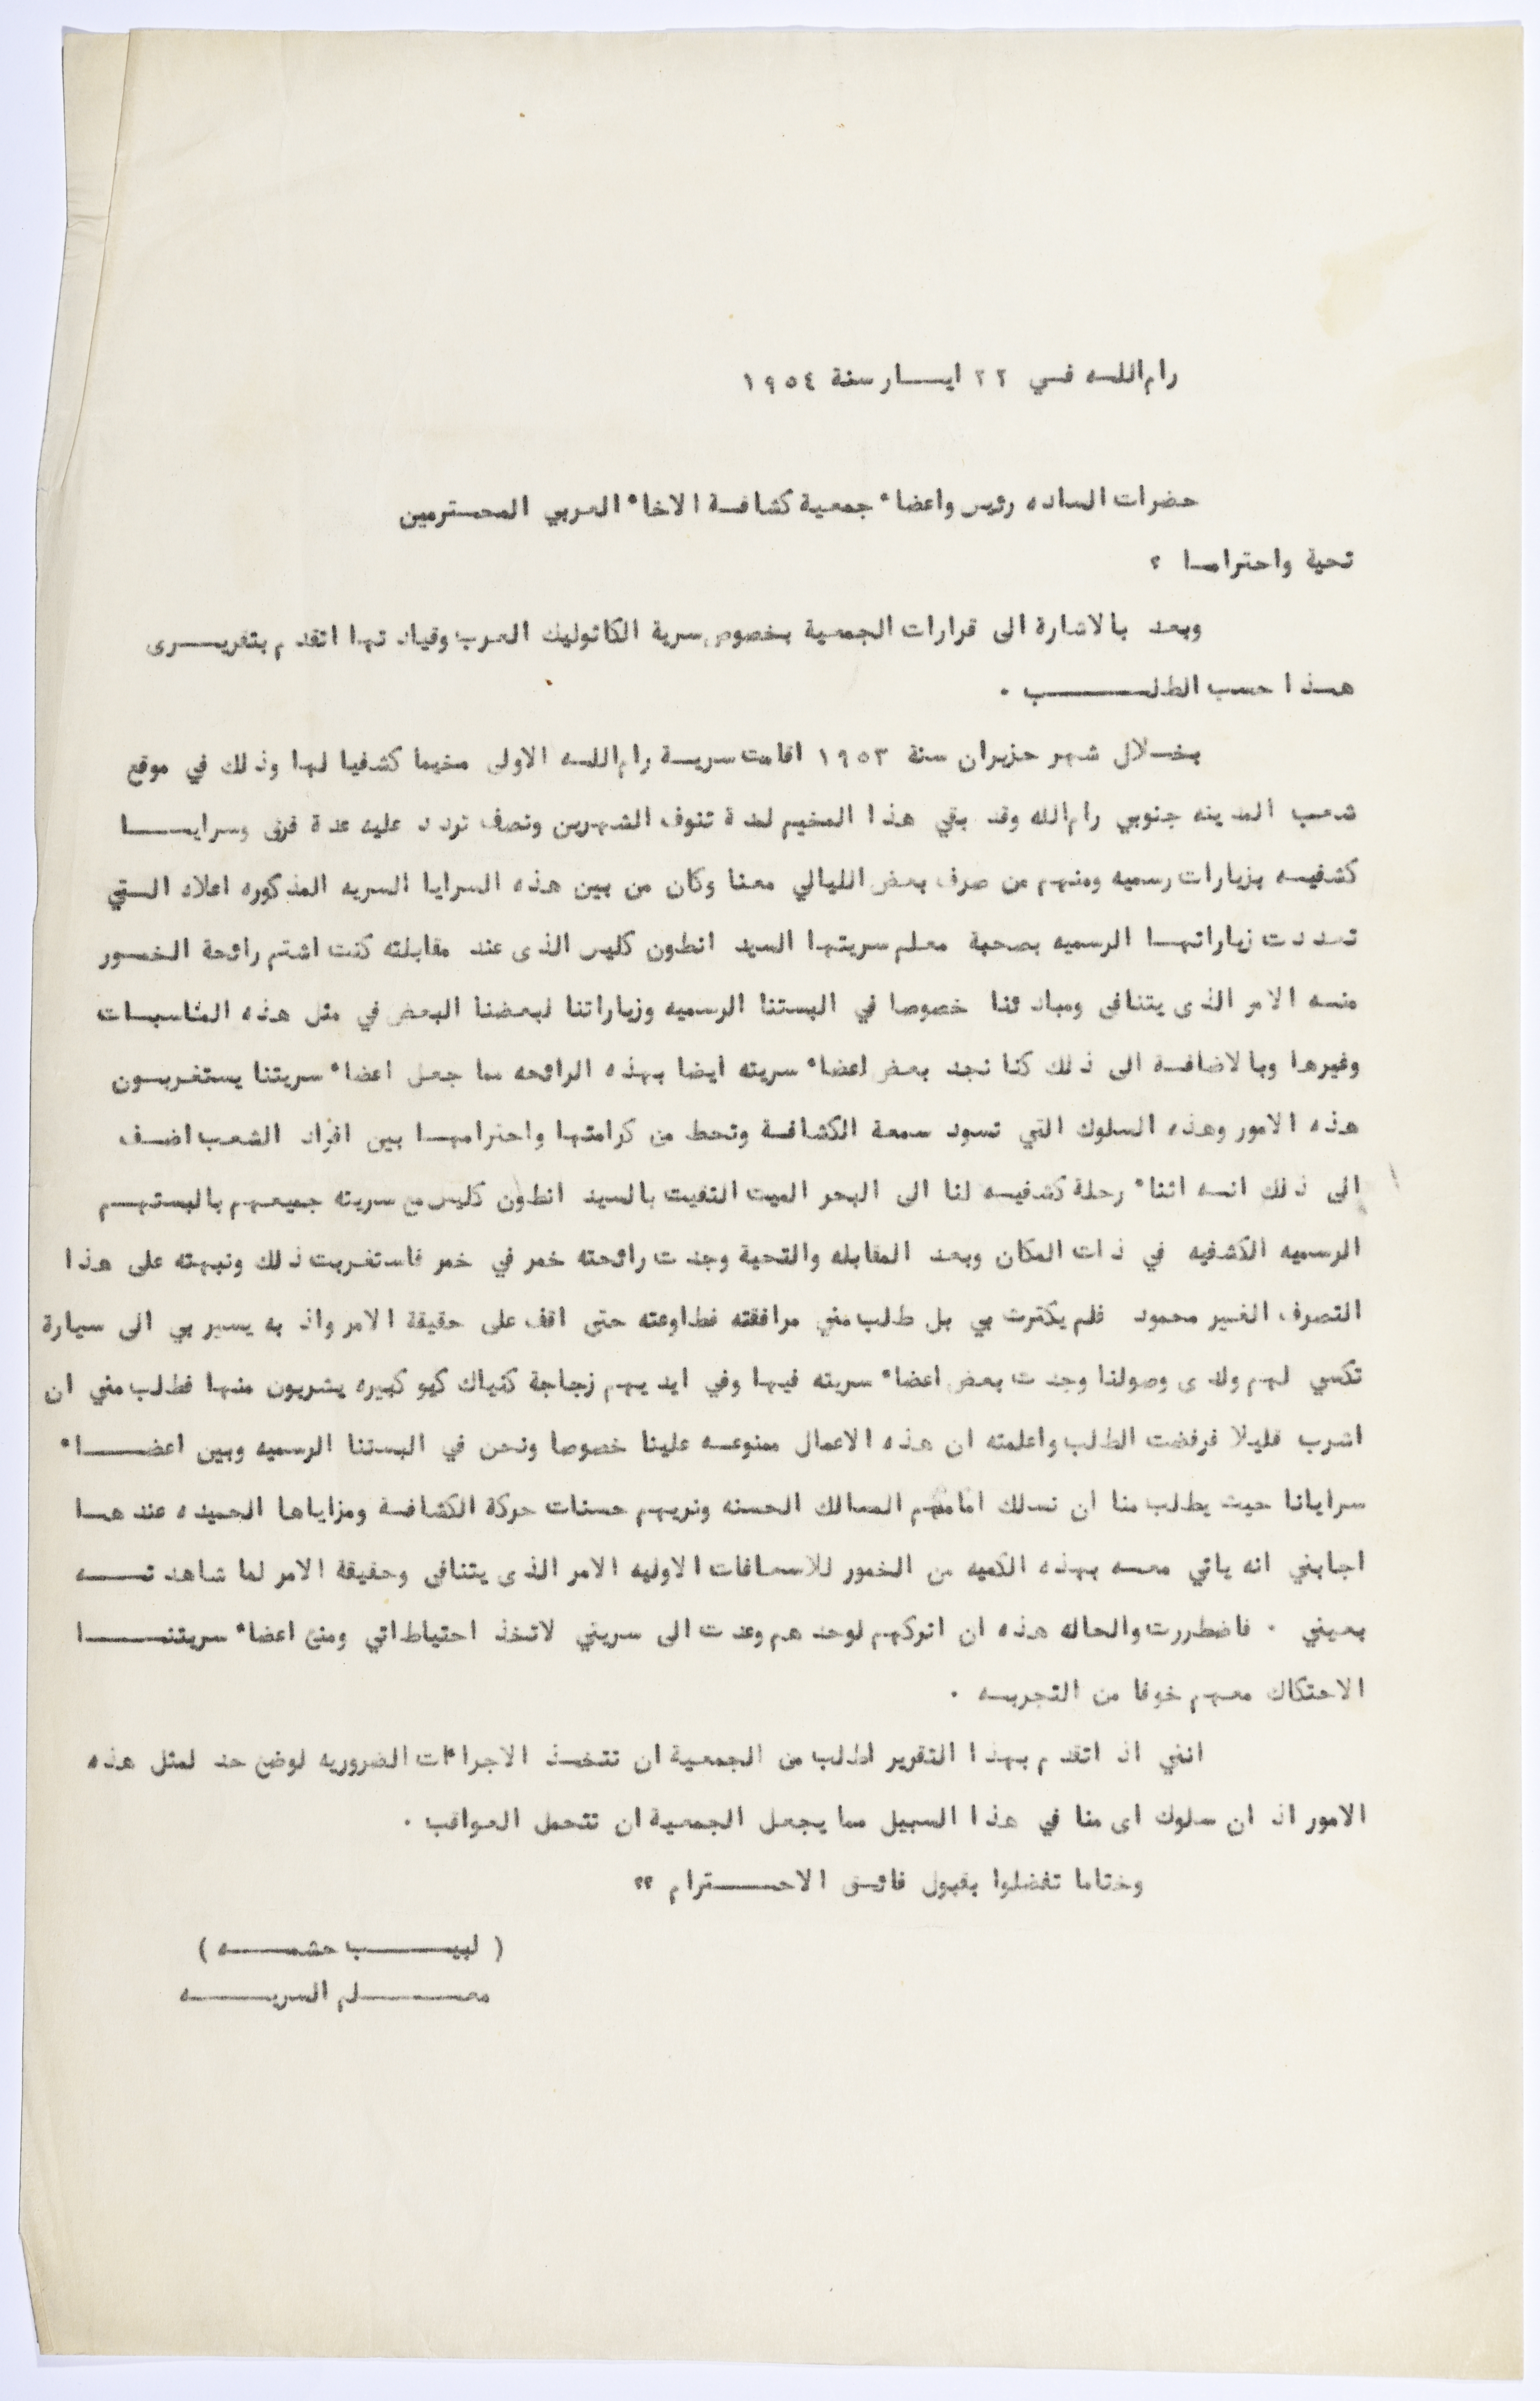 رام الله في ٢٢ ايار سنة ١٩٥٤
حضرات الساده رئيس واعضاء جمعية كشافة الاخاء العربي المحترمين
تحية واحتراما ؟
وبعد بالاشارة الى قرارات الجمعية بخصوص سرية الكاثوليك العرب وقيادتها اتقدم بتقريرى
هذا حسب الطلب .
بخلال شهر حزيران سنة ١٩٥٣ اقامت سرية رام الله الاولى مخيما كشفيا لها وذلك في موقع
شعب المدينه جنوبي رام الله وقد بقي هذا المخيم لمدة تنوف الشهرين ونصف تردد عليه عدة فرق وسرايا
كشفيه بزيارات رسميه ومنهم من صرف بعض الليالي معنا وكان من بين هذه السرايا السريه المذكوره اعلاه التي
تعددت زياراتها الرسميه بصحبة معلم سريتها السيد انطون كليس الذى عند مقابلته كنت اشتم رائحة الخمور
منه الامر الذى يتنافى ومبادئنا خصوصا في البستنا الرسميه وزياراتنا لبعضنا البعض في مثل هذه المناسبات
وغيرها وبالاضافة الى ذلك كنا نجد بعض اعضاء سريته ايضا بهذه الرائحه مما جعل اعضاء سريتنا يستغربون
هذه الامور وهذه السلوك التي تسود سمعة الكشافة وتحط من كرامتها واحترامها بين افراد الشعب اضف
الى ذلك انه اثناء رحلة كشفيه لنا الى البحر الميت التقيت بالسيد انطون كليس مع سريته جميعهم بالبستهم
الرسميه الكشفيه في ذات المكان وبعد المقابله والتحية وجدت رائحته خمر في خمر فاستغربت ذلك ونبهته على هذا
التصرف الغير محمود فلم يكترث بي بل طلب مني مرافقته فطاوعته حتى اقف على حقيقة الامر واذ به يسير بي الى سيارة
تكسي لهم ولدى وصولنا وجدت بعض اعضاء سريته فيها وفي ايديهم زجاجة كنياك كيو كبيره يشربون منها فطلب مني ان
اشرب قليلا فرفضت الطلب واعلمته ان هذه الاعمال ممنوعه علينا خصوصا ونحن في البستنا الرسميه وبين اعضاء
سرايانا حيث يطلب منا ان نسلك امامهم المسالك الحسنه ونريهم حسنات حركة الكشافة ومزاياها الحميده عندها
اجابني انه ياتي معه بهذه الكميه من الخمور للاسعافات الاوليه الامر الذى يتنافى وحقيقة الامر لما شاهدته
بعيني . فاضطررت والحاله هذه ان اتركهم لوحدهم وعدت الى سريتي لاتخذ احتياطاتي ومنع اعضاء سريتنا
الاحتكاك معهم خوفا من التجربه .
انني اذ اتقدم بهذا التقرير اطلب من الجمعية ان تتخذ الاجراءات الضروريه لوضع حد لمثل هذه
الامور اذ ان سلوك اى منا في هذا السبيل مما يجعل الجمعية ان تتحمل العواقب .
وختاما تفضلوا بقبول فائق الاحترام ؟؟
( لبيب حشمه )
معلم السريه